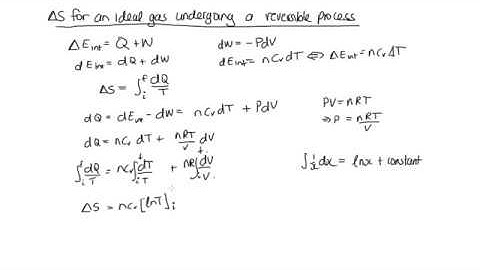 ΔS for an ideal gas undergoing a reversible process
ΔE_int = Q + W
dW = -PdV
dE_int = dQ + dW
dE_int = nC_v dT ⇔ ΔE_int = nC_v ΔT
ΔS = ∫_i^f dQ/T
dQ = dE_int - dW = nC_v dT + PdV
PV = nRT
⇒ P = nRT/V
dQ = nC_v dT + nRT/V dV
∫_i^f dQ/T = nC_v ∫_i^f dT/T + nR ∫_i^f dV/V
∫ 1/x dx = ln x + constant
ΔS = nC_v [lnT]_i